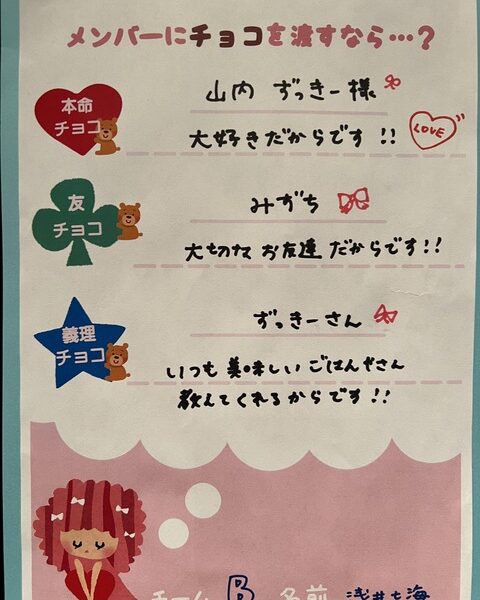 メンバーにチョコを渡すなら…?
本命
チョコ
山内 ずっきー様
大好きだからです!!
LOVE
友
チョコ
みずち
大切な お友達 だからです!!
義理
チョコ
ずっきーさん
いつも 美味しい ごはんやさん
教えてくれるからです!!
チーム B 名前 浅井七海